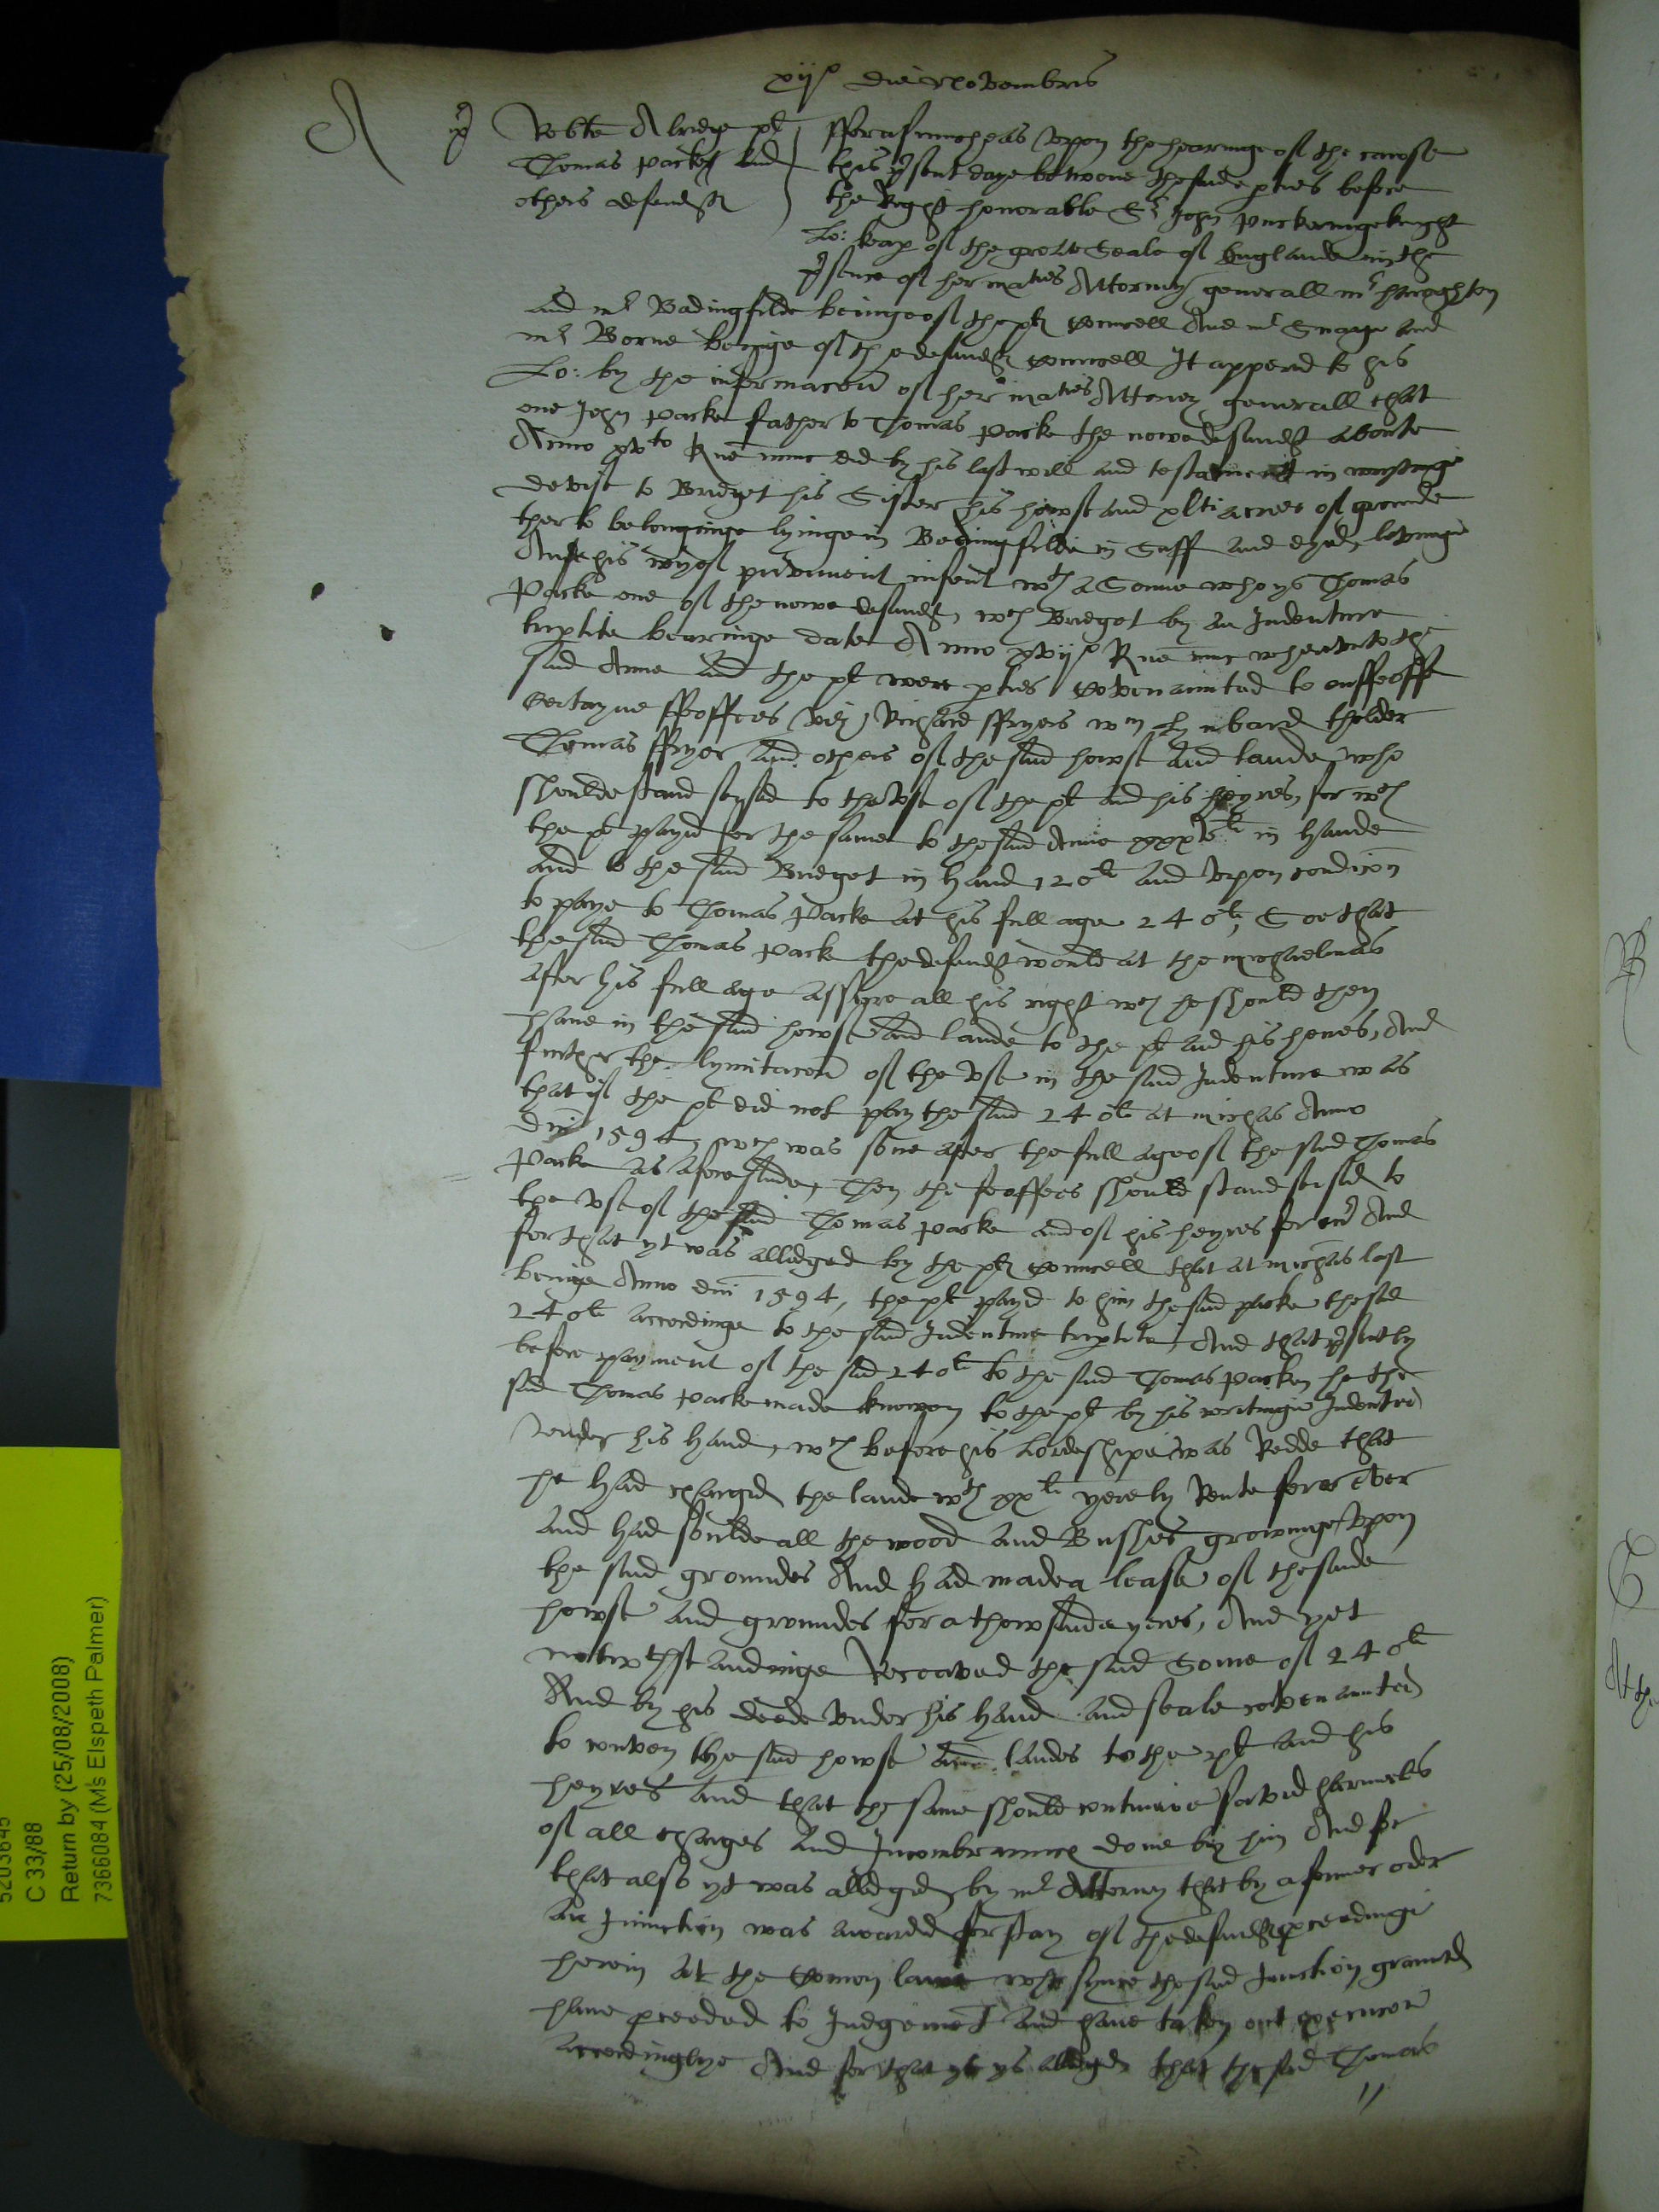 xijo die Novembris
A
Robte Alredge pl
Thomas Parke and
others defendts
fforasmuch as upon the hearinge of the cawse
this psent daye betwene the saide pties before
the Right honorable Sr John Puckeringe knight
Lo: keap of the greate Seale of Englande in the
psence of her maties Attorny generall mr
and mr Bedingfilde beinge of the pl Councell And mr Snagge and
mr Borne beinge of the defendts councell It appered to his
Lo: by the informacon of her maties Attorney generall that
one John Parke father to Thomas Parke the nowe defendt aboute
Anno xvto Rne nunc did by his last will and testament in wrytinge
devise to Bridget his Sister his howse and xlti acres of grounde
therto belonginge lyinge in Bedingfilde in Suff and dyed, levinge
Anne his wyef priviment insent wth a Sonne who ys Thomas
Parke one of the nowe defendts, wch Bridget by an Indenture
triptite bearinge date Anno xvijo Rne nunc wherunto the
said Anne and the pl were pties Covenaunted to enffeoffe
certayne ffeoffees viz, Richard ffryers wm Lymbard thelder
Thomas ffryer and others of the said howse and lande who
shoulde stand seysed to the use of the pl and his heyres, for wch
the pl payd for the same to the said Anne xxxvli in hande
and to the said Bridget in hand 120li and upon condicon
to paye to Thomas Parke at his full age 240li, Soe that
the said Thomas Park the defendt would at the michaelmas
after his full age assure all his right wch he should then
have in the said howse and lande to the pl and his heires, And
further the lymitacon of the use in the said Indenture was
that if the pl did not pay the said 240li at michas Anno
Dni 1594, wch was sone after the full age of the said Thomas
Parke as aforesaide, Then the feoffees should stand seised to
the use of the said Thomas Parke and of his heyres for evr And
for that yt was alledged by the pl Councell that at michas last
beinge Anno dni 1594, the pl payd to him the said Parke the said
240li accordinge to the said Indenture triptite, And that psently
before payment of the said 240li to the said Thomas Parke, he the
said Thomas Parke made knowen to the pl by his writinge Indented
under his hand, wch before his Lordeshipe was Redde that
he had charged the lande wth xxli yerely Rente for ever
and had soulde all the wood and Bushes growinge upon
the said groundes And had made a lease of the saide
howse and groundes for a thowsande yeres, And yet
notwthstandinge Receaved the said Some of 240li
And by his deede under his hand and seale covenaunted
to convey the said howse and landes to the pl and his
heyres and that the same should contineue saved harmeles
of all charges and Incombraunces done by him And for
that also yt was alledged by mr Attorney that by a former order
an Iniunction was awarded for stay of the defendts pceedinge
herein at the Comon lawe who synce the said Iunction graunted
have pceeded to Iudgemet and have taken out execucon
accordinglye And for that yt ys alledged that the said Thomas
C 33/88
Return by (25/08/2008)
7366084 (Ms Elspeth Palmer)